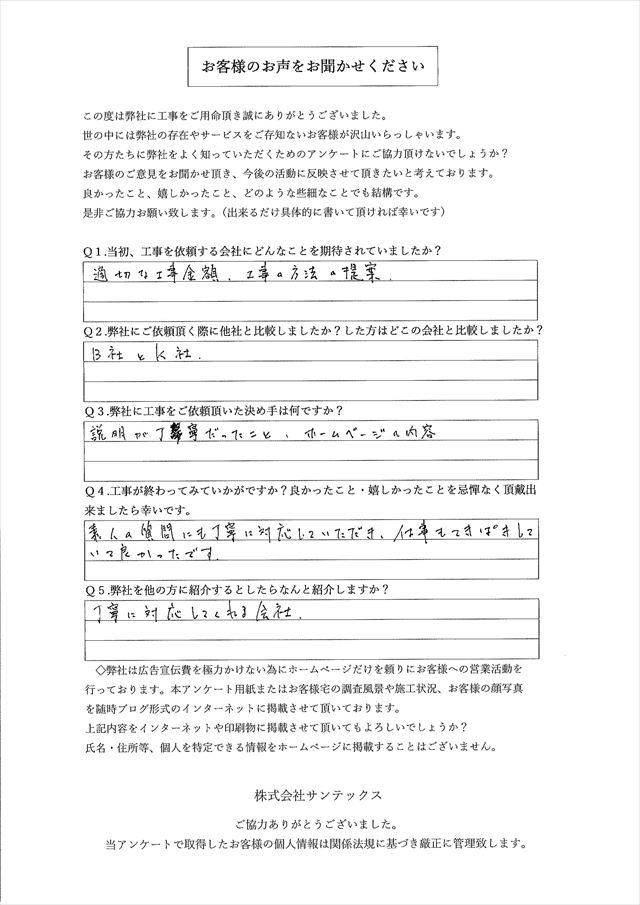 お客様のお声をお聞かせください
この度は弊社に工事をご用命頂き誠にありがとうございました。
世の中には弊社の存在やサービスをご存知ないお客様が沢山いらっしゃいます。
その方たちに弊社をよく知っていただくためのアンケートにご協力頂けないでしょうか？
お客様のご意見をお聞かせ頂き、今後の活動に反映させて頂きたいと考えております。
良かったこと、嬉しかったこと、どのような些細なことでも結構です。
是非ご協力お願い致します。（出来るだけ具体的に書いて頂ければ幸いです）
Ｑ１.当初、工事を依頼する会社にどんなことを期待されていましたか？
適切な工事金額、工事の方法の提案.
Ｑ２.弊社にご依頼頂く際に他社と比較しましたか？した方はどこの会社と比較しましたか？
B社とK社.
Ｑ３.弊社に工事をご依頼頂いた決め手は何ですか？
説明が丁寧だったこと、ホームページの内容
Ｑ４.工事が終わってみていかがですか？良かったこと・嬉しかったことを忌憚なく頂戴出
来ましたら幸いです。
素人の質問にも丁寧に対応していただき、仕事もてきぱきして
いて良かったです.
Ｑ５.弊社を他の方に紹介するとしたらなんと紹介しますか？
丁寧に対応してくれる会社.
◇弊社は広告宣伝費を極力かけない為にホームページだけを頼りにお客様への営業活動を
行っております。本アンケート用紙またはお客様宅の調査風景や施工状況、お客様の顔写真
を随時ブログ形式のインターネットに掲載させて頂いております。
上記内容をインターネットや印刷物に掲載させて頂いてもよろしいでしょうか？
氏名・住所等、個人を特定できる情報をホームページに掲載することはございません。
株式会社サンテックス
ご協力ありがとうございました。
当アンケートで取得したお客様の個人情報は関係法規に基づき厳正に管理致します。